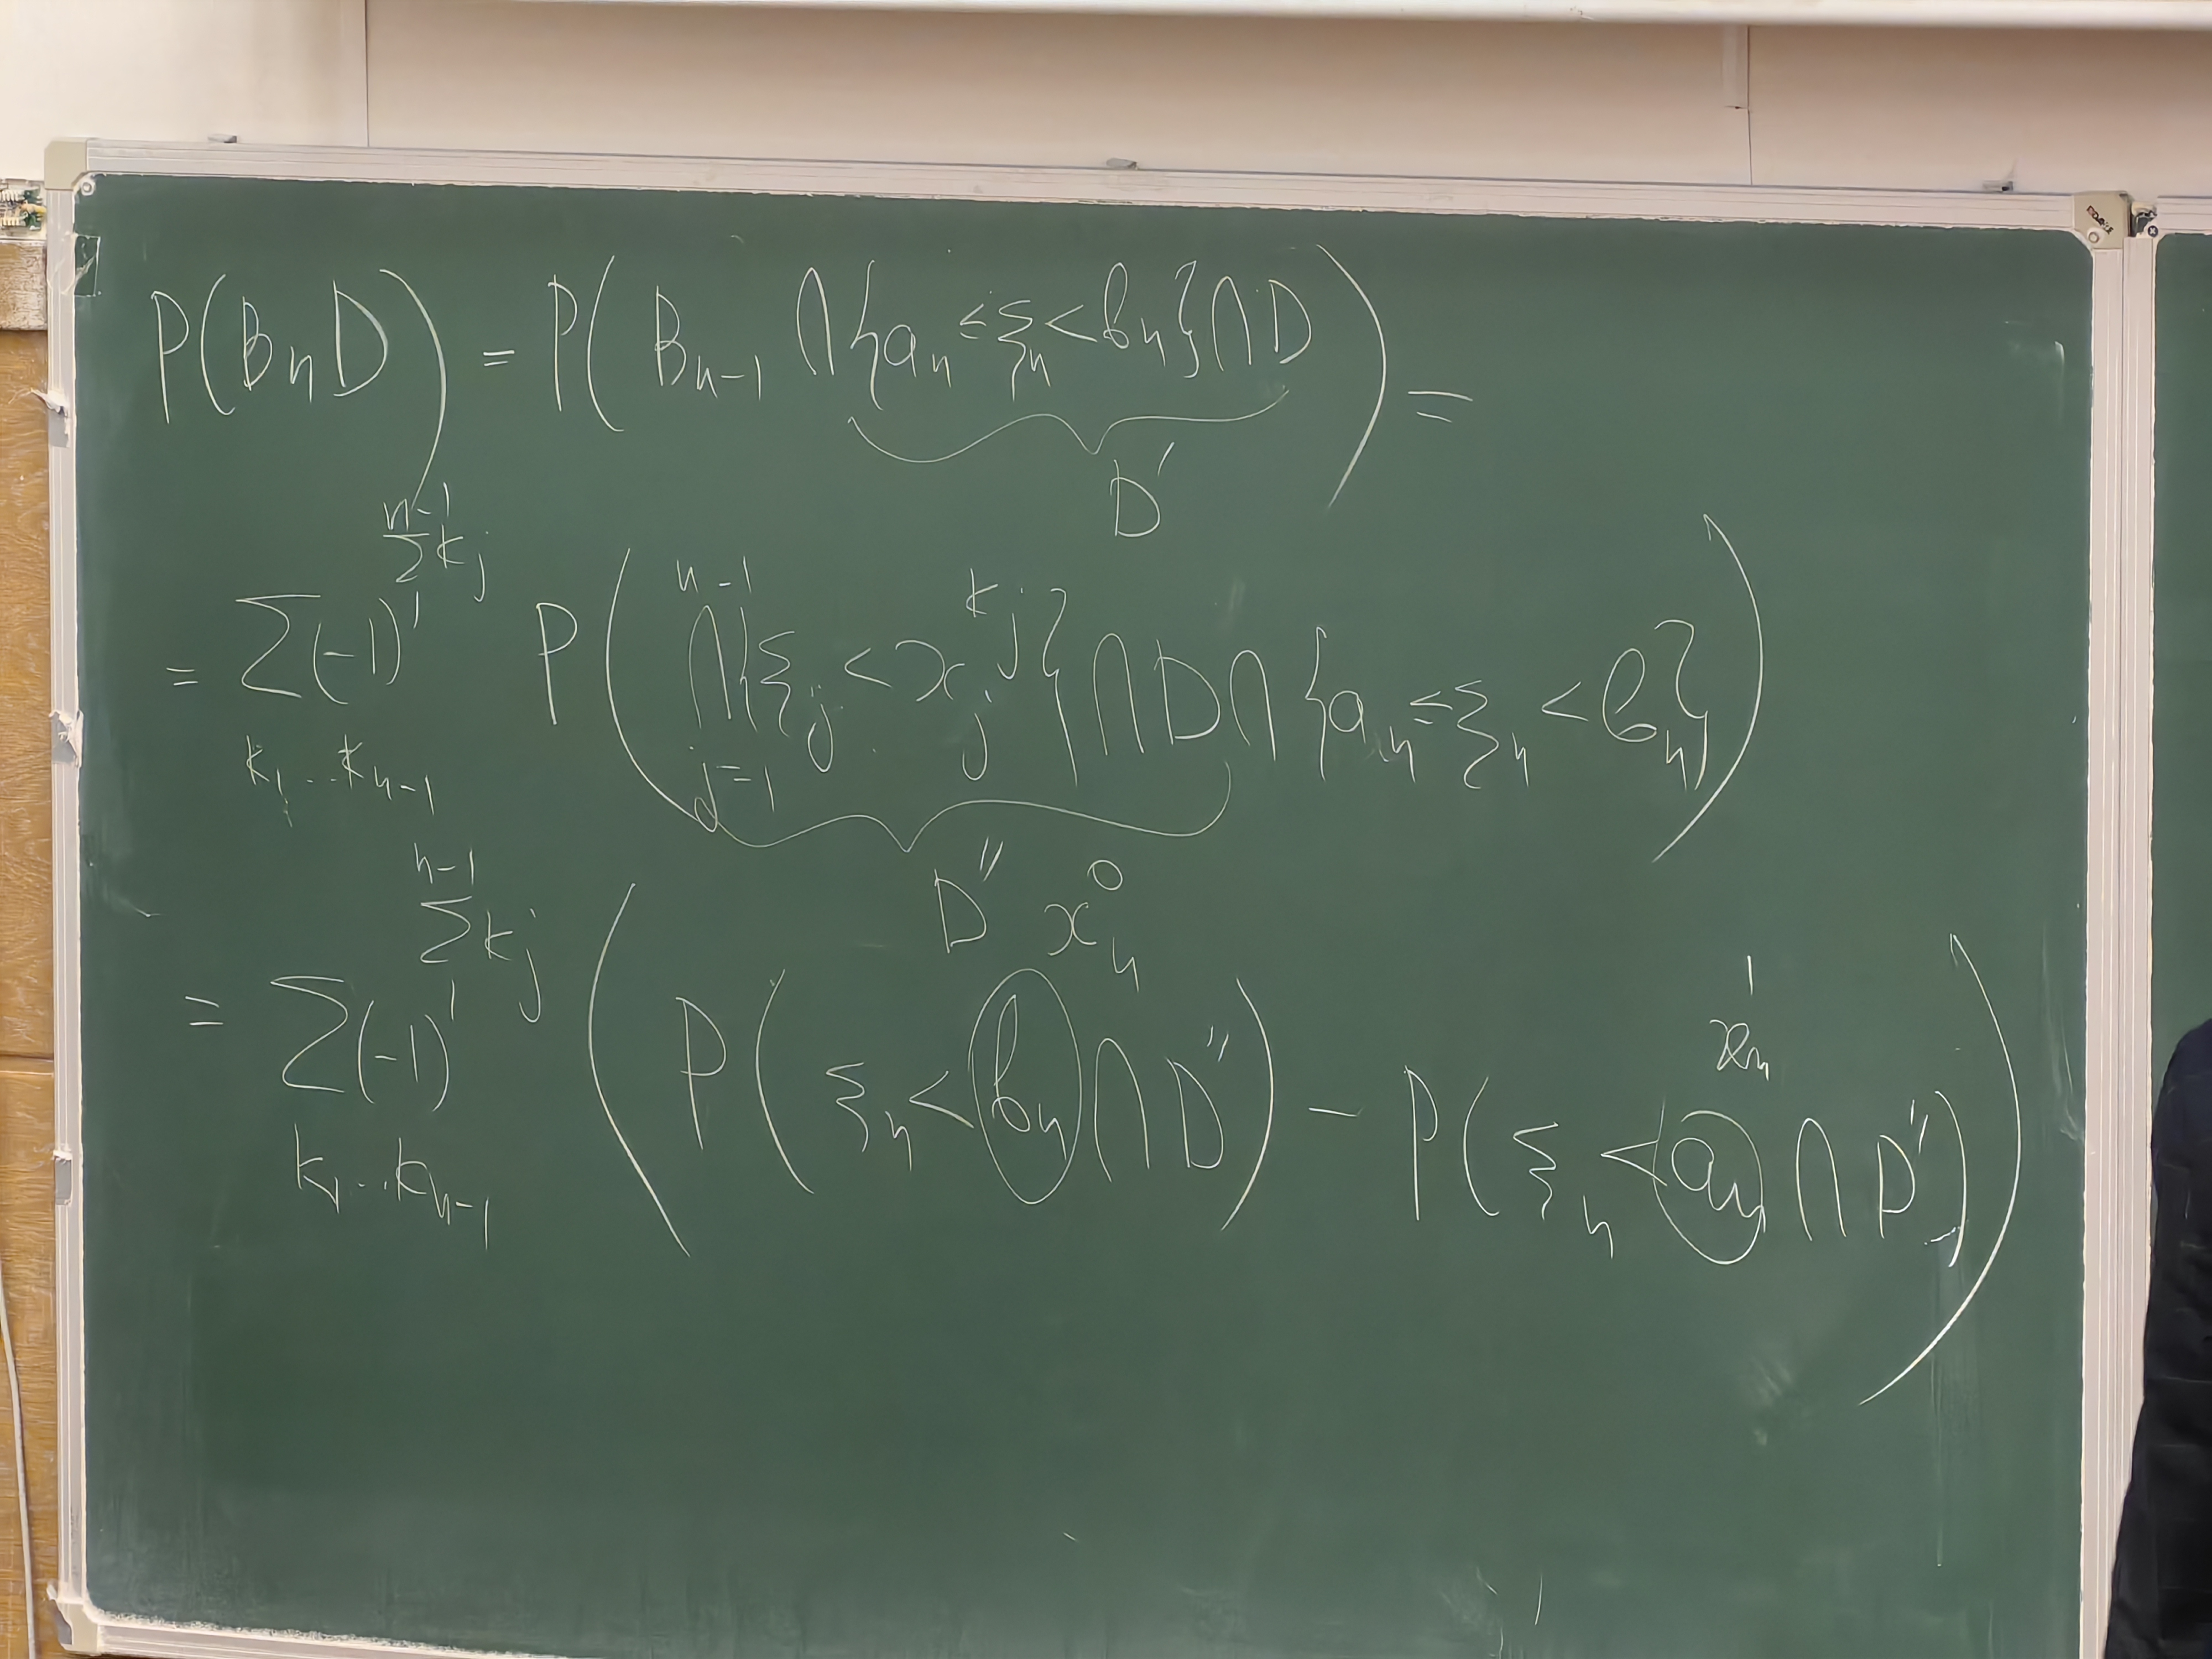 P(BₙD) = P(Bₙ₋₁ ∩ {aₙ ≤ ξₙ < bₙ} ∩ D) =
D′
= ∑_{k₁…kₙ₋₁} (-1)^{∑₁ⁿ⁻¹ kⱼ} P(∩_{j=1}^{n-1} {ξⱼ < xⱼ^{kⱼ}} ∩ D ∩ {aₙ ≤ ξₙ < bₙ})
D″ xₙ⁰
xₙ¹
= ∑_{k₁…kₙ₋₁} (-1)^{∑₁ⁿ⁻¹ kⱼ} (P(ξₙ < bₙ ∩ D″) − P(ξₙ < aₙ ∩ D″))